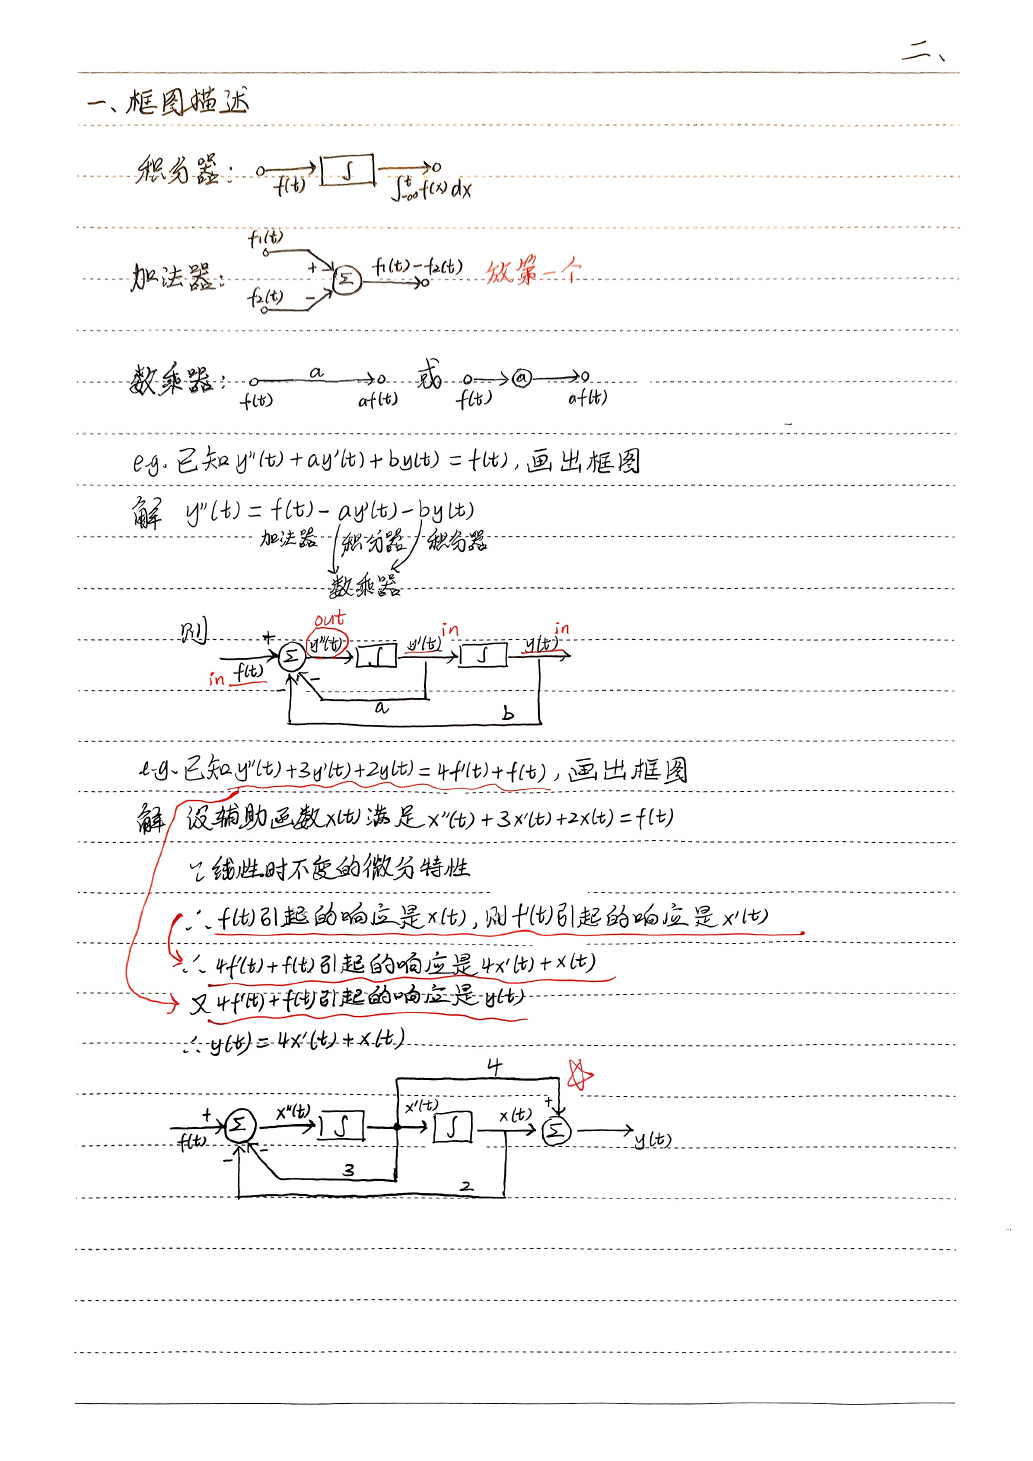 二、
一、框图描述
积分器： f(t) ∫ ∫_{-∞}^{t} f(x)dx
f₁(t)
加法器： + Σ f₁(t)-f₂(t) 放第一个
f₂(t) -
数乘器： a 或 a
f(t) af(t) f(t) af(t)
e.g. 已知 y''(t)+ay'(t)+by(t)=f(t), 画出框图
解 y''(t)=f(t)-ay'(t)-by(t)
加法器 积分器 积分器
数乘器
out
则 + Σ y''(t) ∫ y'(t) in ∫ y(t) in
in f(t) - -
a
b
e.g. 已知 y''(t)+3y'(t)+2y(t)=4f'(t)+f(t), 画出框图
解 设辅助函数x(t)满足 x''(t)+3x'(t)+2x(t)=f(t)
∵线性时不变的微分特性
∴ f(t)引起的响应是x(t), 则f'(t)引起的响应是x'(t)
∴ 4f'(t)+f(t)引起的响应是4x'(t)+x(t)
又 4f'(t)+f(t)引起的响应是y(t)
∴ y(t)=4x'(t)+x(t)
4
+ Σ x''(t) ∫ x'(t) ∫ x(t) + Σ y(t)
f(t) - -
3
2